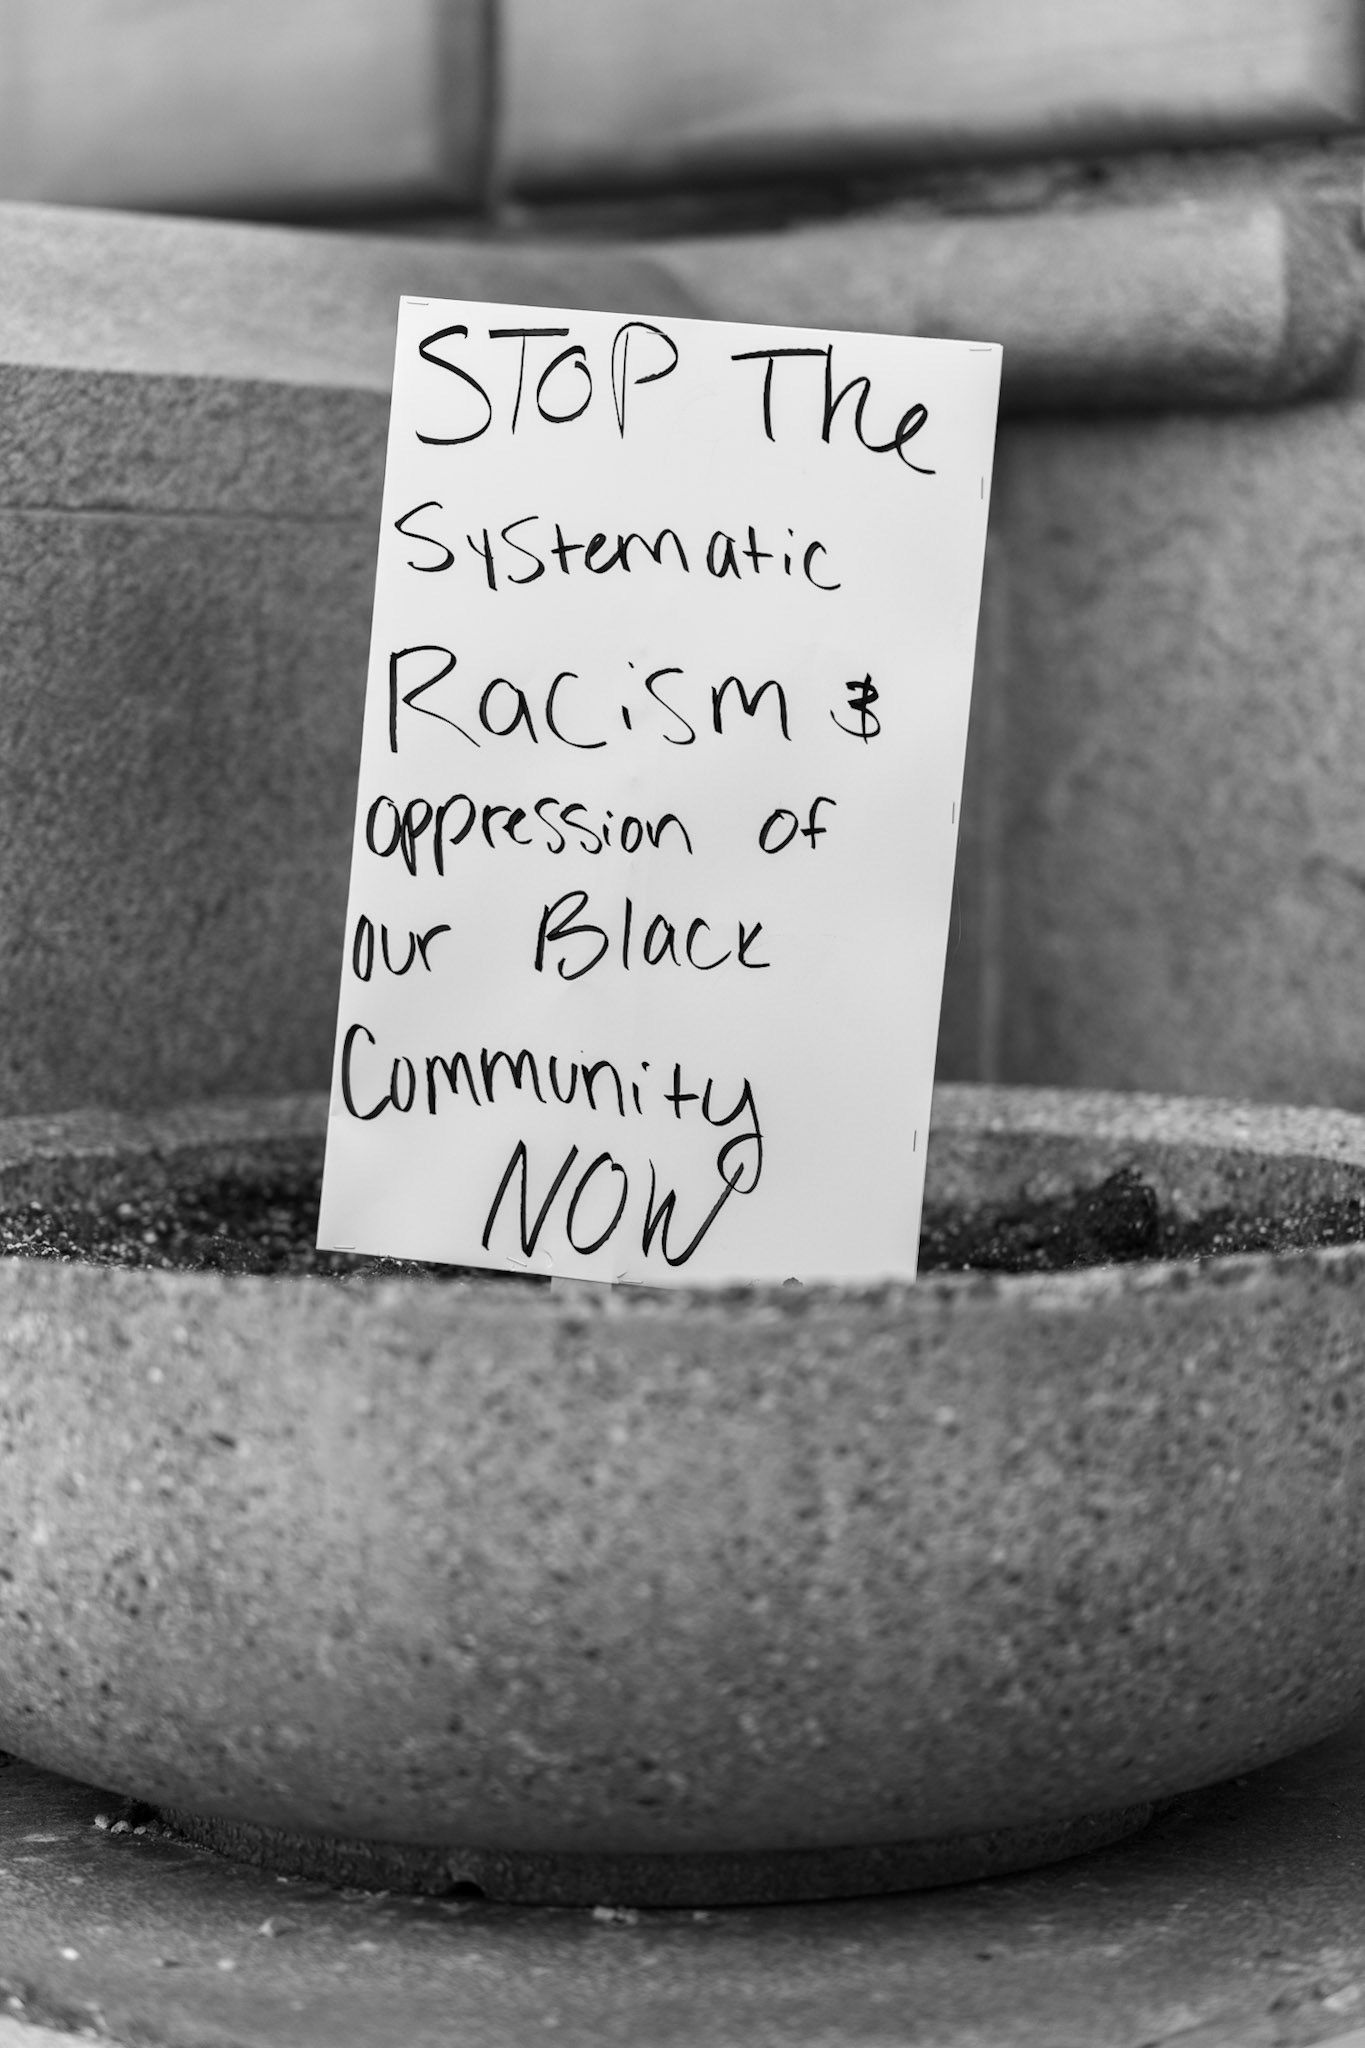 STOP The
Systematic
Racism &
oppression of
our Black
Community
NOW